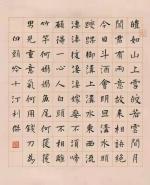 皚如山上雪皎若雲間月
聞君有兩意故來相決絕
今日斗酒會明旦溝水頭
躞蹀御溝上溝水東西流
淒淒復淒淒嫁娶不須啼
願得一心人白頭不相離
竹竿何嫋嫋魚尾何簁簁
男兒重意氣何用錢刀為